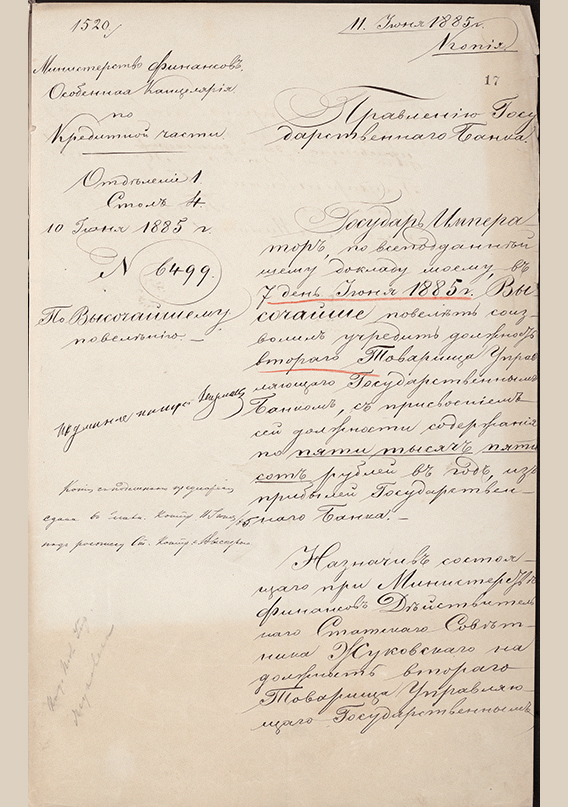 1520
11. Іюня 1885 г.
Копія
17
Министерство финансовъ.
Особенная Канцелярія
по
Кредитной части
Отдѣленіе 1.
Столъ 4.
10 Іюня 1885 г.
№ 6499.
По Высочайшему
повелѣнію.
Правленію Госу
дарственнаго Банка.
Государь Импера-
торъ, по всеподданнѣй
шему докладу моему, въ
7 день Іюня 1885 г., Вы-
сочайше повелѣть соиз-
волилъ учредить должность
втораго Товарища Управ
ляющаго Государственнымъ
Банкомъ, съ присвоеніемъ
сей должности содержанія
по пяти тысячъ пяти
сотъ рублей въ годъ, изъ
прибылей Государствен-
наго Банка.
Назначивъ состоя-
щаго при Министерствѣ
финансовъ Дѣйствитель
наго Статскаго Совѣт-
ника Жуковскаго на
должность втораго
Товарища Управляю-
щаго Государственнымъ